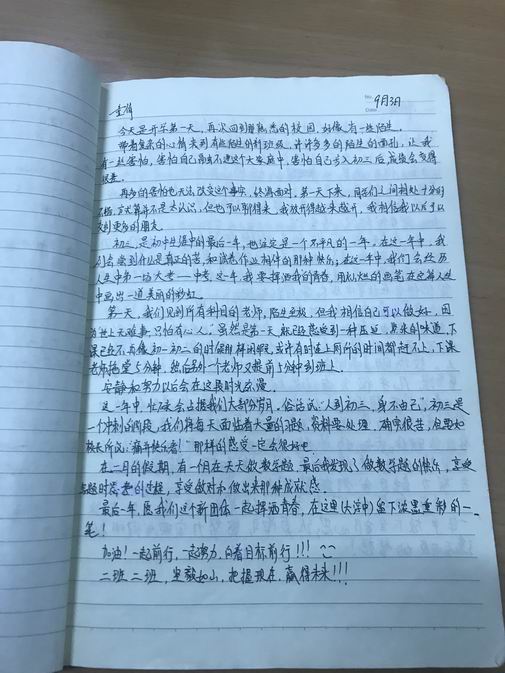 No.
Date
9月3日
今天是开学第一天，再次回到熟悉的校园，好像有一些陌生。
带着复杂的心情来到有些陌生的新班级，并许许多多的陌生的面孔，让我
有一些害怕，害怕自己融不进这个大家庭中，害怕自己步入初三后成绩会变得
很差。
再多的害怕也无法改变这个事实，终得面对，第一天下来，同学们之间相处十分的
不错，今天算并不是太认识，但也可以聊得来，我放开得越来越开，我相信我以后可以
交到更多的朋友。
初三，是初中生涯中的最后一年，也注定是一个不平凡的一年，在这一年中，我
们会尝到什么是真正的苦，和试卷作业相伴的那种快乐；在这一年中，我们会经历
人生中第一场大考——中考，这一年，我要挥洒我的青春，用灿烂的画笔在这篇人生
中画出一道美丽的彩虹。
第一天，我们见到所有科目的老师，陌生至极，但我相信自己可以做好，因
为"世上无难事，只怕有心人。"虽然是第一天就已经感受到一种压迫，原来的味道，下
课已经不再像初一初二的时候那样闲暇，或许有时连上厕所的时间都赶不上，下课
老师拖堂5分钟，然后另外一个老师又提前1分钟到班上。
安静和努力以后会在这段时光弥漫。
这一年中，忙碌会占据我们大部分岁月，俗话说："人到初三，身不由己"，初三是
一个冲刺的阶段，我们将每天面临着大量的习题，资料要处理，确实很苦，但要如
校长所说："痛并快乐着！"那样的感受一定会很好吧
在二月的假期，有一个月在天天做数学题，最后我发现了做数学题的快乐，享受
做题时思考的过程，享受做对和做出来那种成就感。
最后一年，愿我们这个新团体一起挥洒青春，在这里(大洋中)留下浓墨重彩的一
笔！
加油！一起前行，一起努力，向着目标前行!!!
二班二班，坚毅如山，把握现在，赢得未来!!!